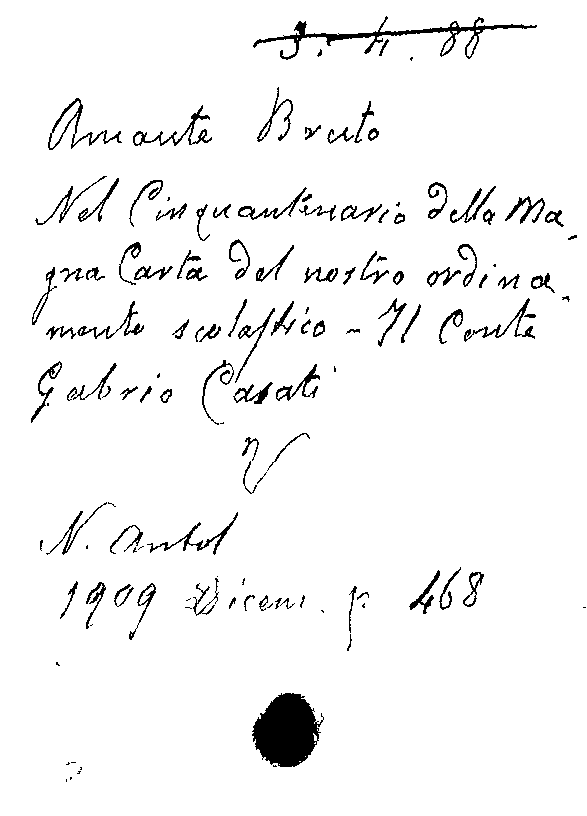 3. 4. 88
Amante Bruto
Nel Cinquantenario della Ma-
gna Carta del nostro ordina-
mento scolastico - Il Conte
Gabrio Casati
V
N. Antol
1909 Dicem. p. 468